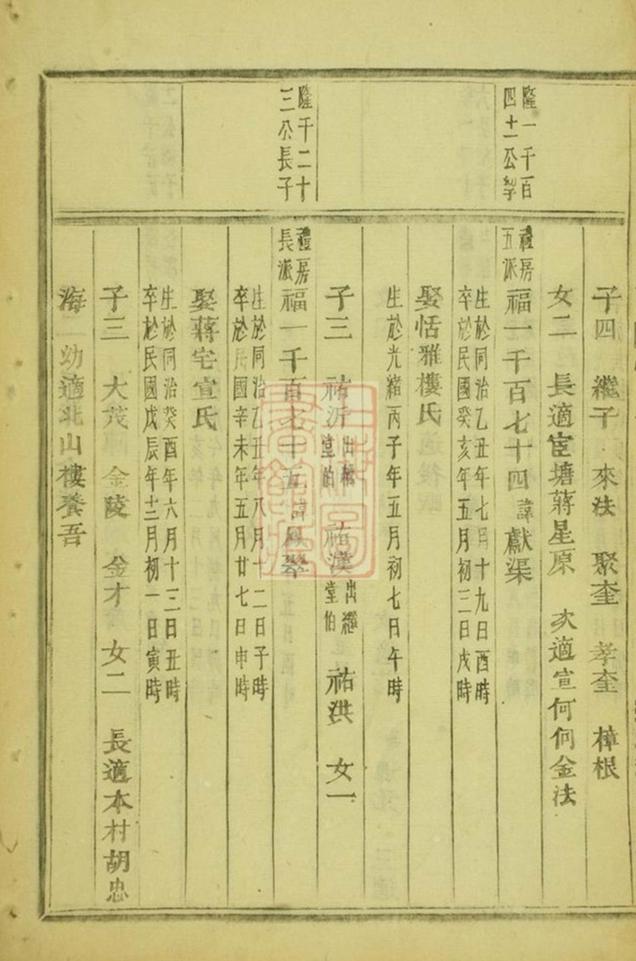 子四 繼子 來法 聚奎 孝奎 樟根
女二 長適宦塘蔣星原 次適宣何何金法
隆一千百
四十一公
禮房
五派
福一千百七十四諱獻渠
生於同治乙丑年七月十九日酉時
卒於民國癸亥年五月初三日戌時
娶恬雅樓氏
生於光緒丙子年五月初七日午時
子三 祐沂出繼堂伯 祐漢出繼堂伯 祐洪 女一
隆千二十
三公長子
禮房
長派
福一千百七十五諱鳳翠
生於同治乙丑年八月十二日子時
卒於民國辛未年五月廿七日申時
娶蔣宅宣氏
生於同治癸酉年六月十三日丑時
卒於民國戊辰年十二月初一日寅時
子三 大茂 金陵 金才 女二 長適本村胡忠
海 幼適北山樓養吾